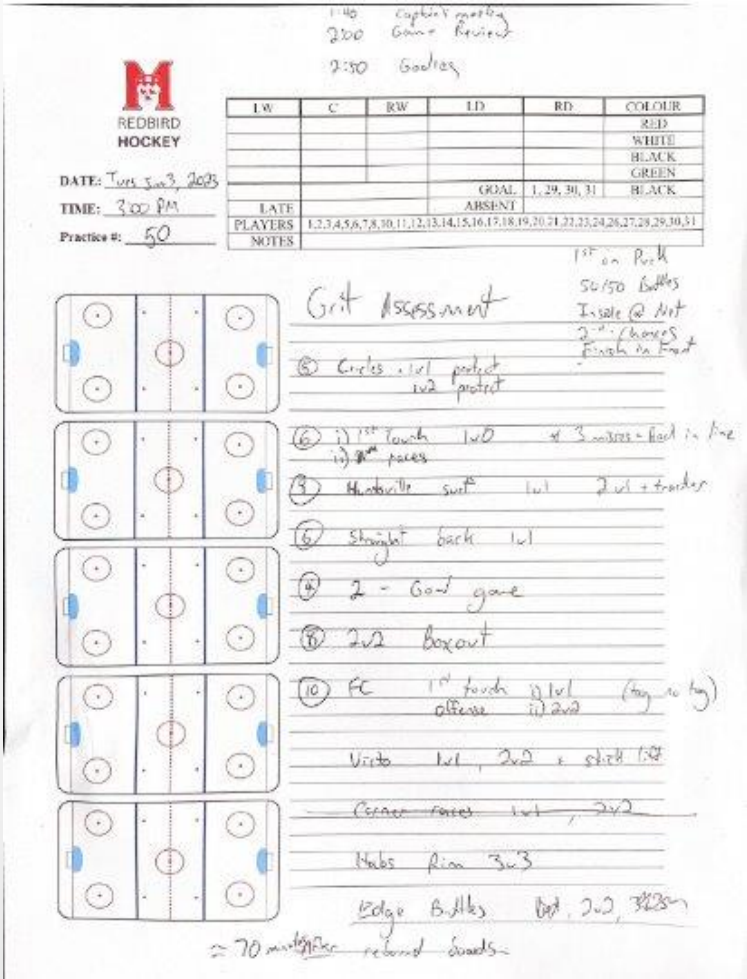 1:40 Captain's meeting
2:00 Game Review
2:50 Goalies
M
REDBIRD
HOCKEY
LW C RW LD RD COLOUR
RED
WHITE
BLACK
GREEN
GOAL 1, 29, 30, 31 BLACK
LATE ABSENT
PLAYERS 1,2,3,4,5,6,7,8,10,11,12,13,14,15,16,17,18,19,20,21,22,23,24,26,27,28,29,30,31
NOTES
DATE: Tues Jan 3, 2023
TIME: 3:00 PM
Practice #: 50
1st on Puck
50/50 Battles
Inside @ Net
2nd Chances
Finish in Front
Grit Assessment
5 Circles 1v1 protect
1v2 protect
6 i) 1st Touch 1v0 * 3 misses = Back in line
ii) races
Huntsville surf 1v1 2v1 +
Straight back 1v1
2 - Goal game
8 2v2 Boxout
10 FC 1st touch i) 1v1 (tag no tag)
offense ii) 2v2
1v1, 2v2 + stick lift
Corner races 1v1, 2v2
Habs Rim 3v3
Edge Battles 2v2,
≈ 70 rebound boards